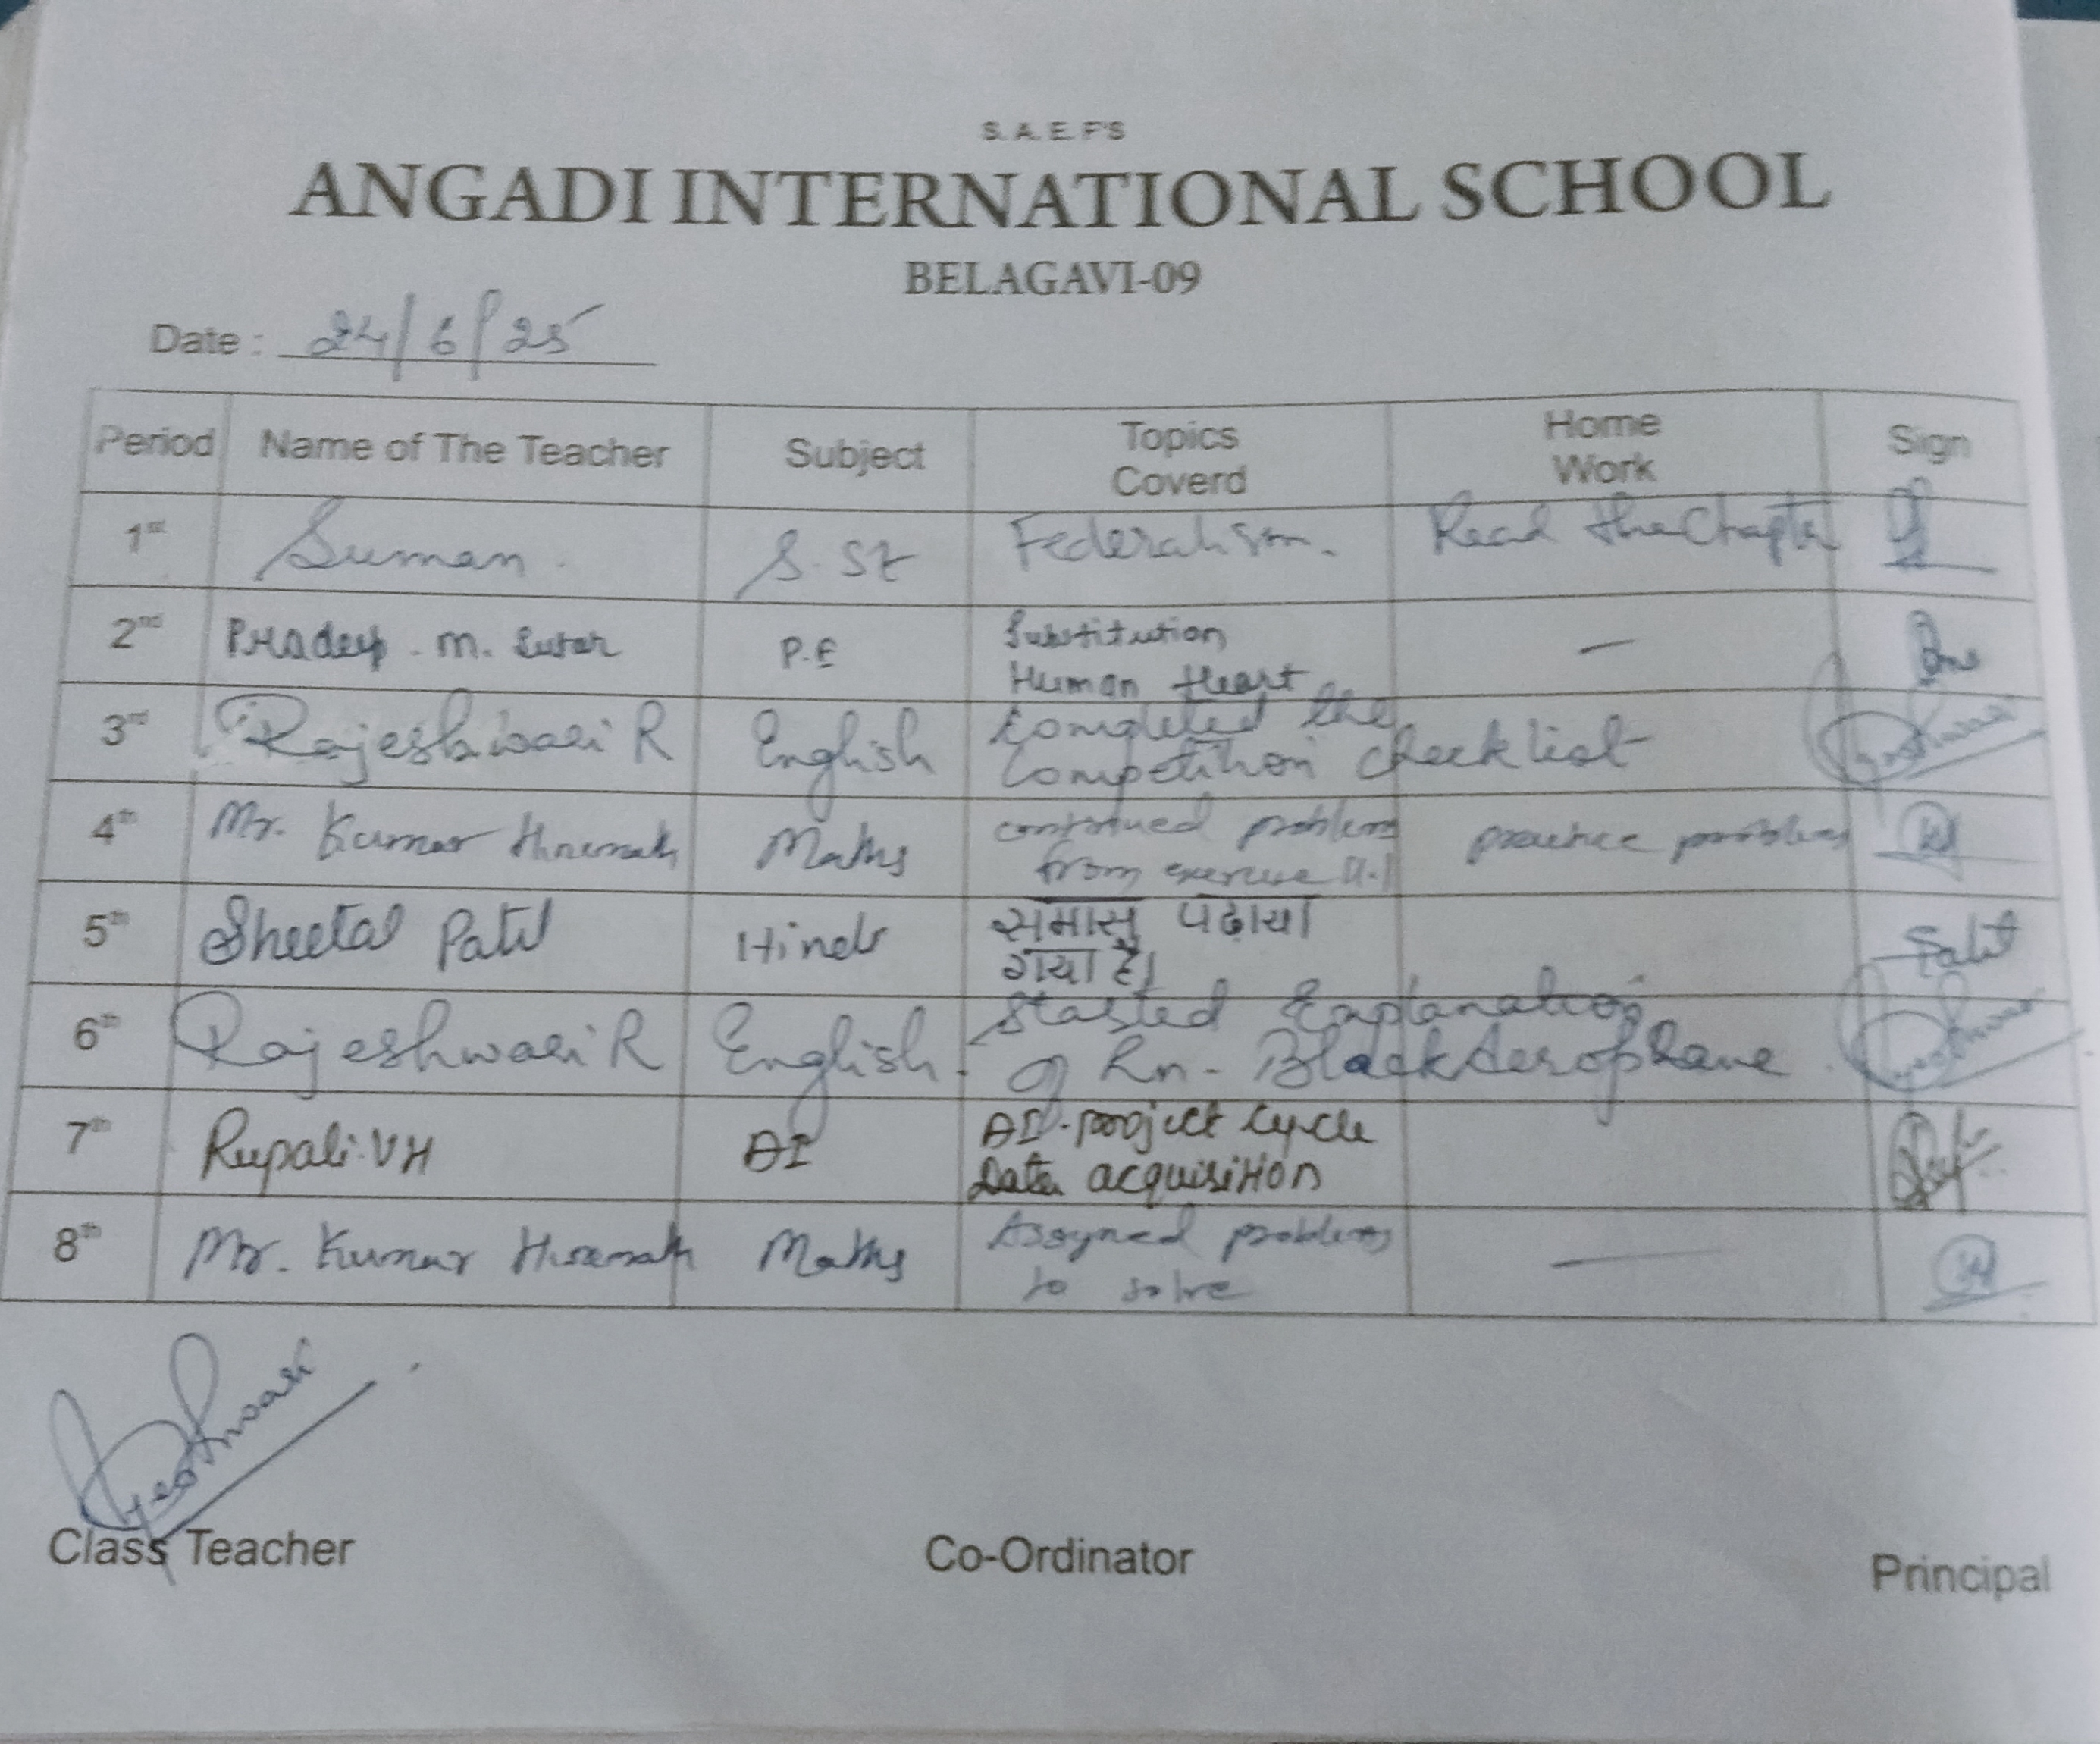 S. A. E. F'S
ANGADI INTERNATIONAL SCHOOL
BELAGAVI-09
Date : 24/6/25
Period Name of The Teacher Subject Topics Coverd Home Work Sign
1st Suman. S. St Federalism. Read the Chapter
2nd Pradeep . m. Sutar P.E Substitution —
Human Heart
3rd Rajeshwari R English Completed the
Competition checklist
4th Mr. Kumar Hiremath Maths continued problems practice problems
from exercise
5th Sheetal Patil Hindi समास पढ़ाया
गया है।
6th Rajeshwari R English. Started Explanation
of Ln - Black Aeroplane
7th Rupali.VH AI AI-project cycle
Data acquisition
8th Mr. Kumar Hiremath Maths Assigned problems —
to solve
Class Teacher Co-Ordinator Principal